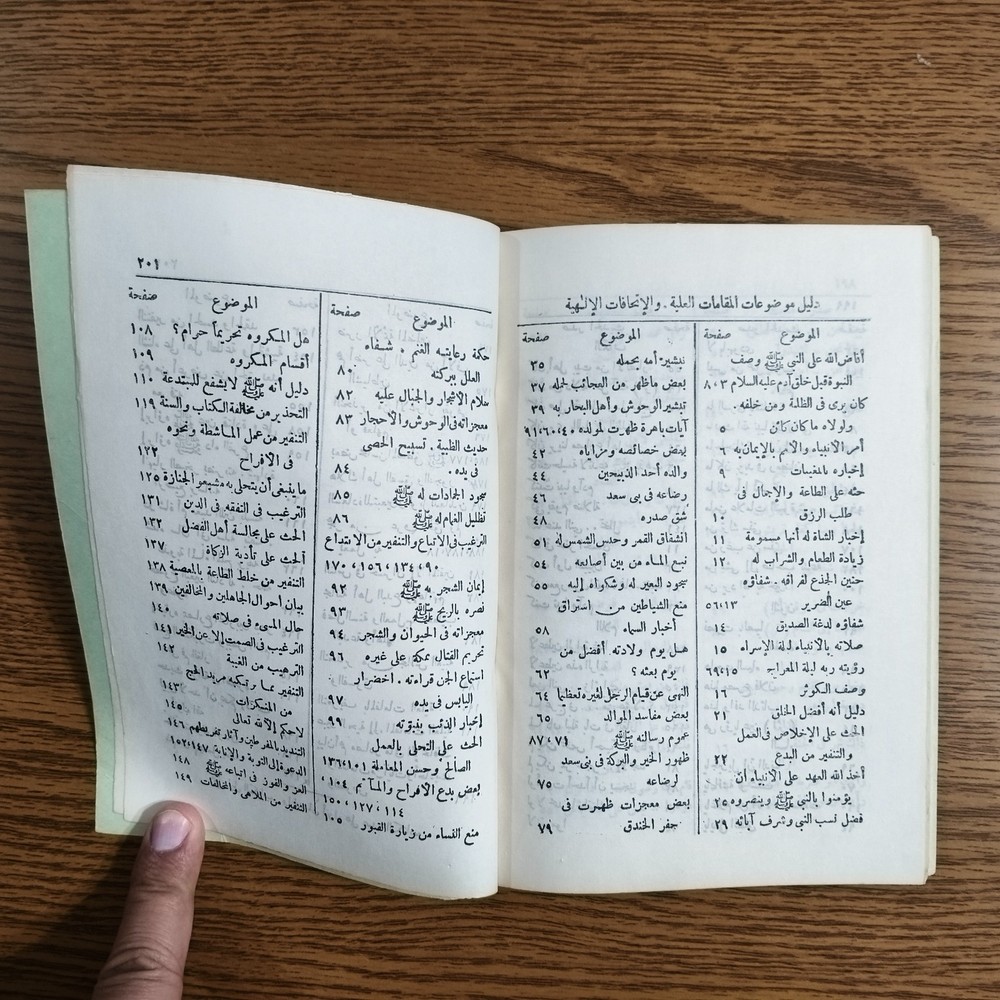 دليل موضوعات المقامات العلية . والإتحافات الإلٰهية
الموضوع صفحة
أفاض الله على النبي ﷺ وصف
النبوة قبل خلق آدم عليه السلام ٣،٨
كان يرى فى الظلمة ومن خلفه .
ولولاه ما كان كائن ٥
أمر الأنبياء والأمم بالإيمان به ٦
إخباره بالمغيبات ٩
حثه على الطاعة والإجمال فى
طلب الرزق ١٠
إخبار الشاة له أنها مسمومة ١١
زيادة الطعام والشراب له ١٢
حنين الجذع لفراقه . شفاؤه
عين الضرير ١٣،٥٦
شفاؤه لدغة الصديق ١٤
صلاته بالأنبياء ليلة الإسراء ١٥
رؤيته ربه ليلة المعراج ١٥،٦٩
وصف الكوثر ١٦
دليل أنه أفضل الخلق ٢١
الحث على الإخلاص فى العمل
والتنفير من البدع ٢٢
أخذ الله العهد على الأنبياء أن
يؤمنوا بالنبي ﷺ وينصروه ٢٥
فضل نسب النبي وشرف آبائه ٢٩
الموضوع صفحة
تبشير أمه بحمله ٣٥
بعض ما ظهر من العجائب لحمله ٣٧
تبشير الوحوش وأهل البحار به ٣٩
آيات باهرة ظهرت لمولده ٤٠،٦٠،٩١
بعض خصائصه ومزاياه ٤٢
والده أحد الذبيحين ٤٤
رضاعه فى بنى سعد ٤٦
شق صدره ٤٨
انشقاق القمر وحبس الشمس له ٥١
نبع الماء من بين أصابعه ٥٤
سجود البعير له وشكواه إليه ٥٥
منع الشياطين من استراق
أخبار السماء ٥٨
هل يوم ولادته أفضل من
يوم بعثه؟ ٦٢
النهى عن قيام الرجل لغيره تعظيما ٦٤
بعض مفاسد الموالد ٦٥
عموم رسالته ﷺ ٧١،٨٧
ظهور الخير والبركة فى بنى سعد
لرضاعه ٧٥
بعض معجزات ظهرت فى
حفر الخندق ٧٩
٢٠١
الموضوع صفحة
حكمة رعايته الغنم . شفاء
العلل ببركته ٨٠
سلام الأشجار والجبال عليه ٨٢
معجزاته فى الوحوش والأحجار ٨٣
حديث الظبية . تسبيح الحصى
فى يده . ٨٤
سجود الجمادات له ﷺ ٨٥
تظليل الغمام له ﷺ ٨٦
الترغيب فى الاتباع والتنفير من الابتداع
٩٠،١٣٤،١٥٦،١٧٠
إيمان الشجر به ﷺ ٩٢
نصره بالريح ﷺ ٩٣
معجزاته فى الحيوان والشجر ٩٤
تحريم القتال بمكة على غيره ٩٦
استماع الجن قراءته . اخضرار
اليابس فى يده ٩٧
إخبار الذئب بنبوته ٩٩
الحث على التحلى بالعمل
الصالح وحسن المعاملة ١٠١،١٣٦
بعض بدع الأفراح والمآتم ١٠٤،
١١٤،١٢٧،١٥٠
منع النساء من زيارة القبور ١٠٥
الموضوع صفحة
هل المكروه تحريماً حرام؟ ١٠٨
أقسام المكروه ١٠٩
دليل أنه ﷺ لا يشفع للمبتدعة ١١٠
التحذير من مخالفة الكتاب والسنة ١١٩
التنفير من عمل الماشطة ونحوه
فى الأفراح ١٢٢
ما ينبغى أن يتحلى به مشيعو الجنازة ١٢٥
الترغيب فى التفقه فى الدين ١٣١
الحث على مجالسة أهل الفضل ١٣٢
الحث على تأدية الزكاة ١٣٧
التنفير من خلط الطاعة بالمعصية ١٣٨
بيان أحوال الجاهلين والمخالفين ١٣٩
حال المسىء فى صلاته ١٤٠
الترغيب فى الصمت إلا عن الخير ١٤١
الترهيب من الغيبة ١٤٢
التنفير مما يرتكبه مريد الحج
من المنكرات ١٤٣
لا حكم إلا لله تعالى ١٤٥
التنديد بالمفرطين وآثار تفريطهم ١٤٦
الدعوة إلى التوبة والإنابة ١٤٧،١٥٢
العز والفوز فى اتباعه ﷺ ١٤٨
التنفير من الملاهى والمخالفات ١٤٩